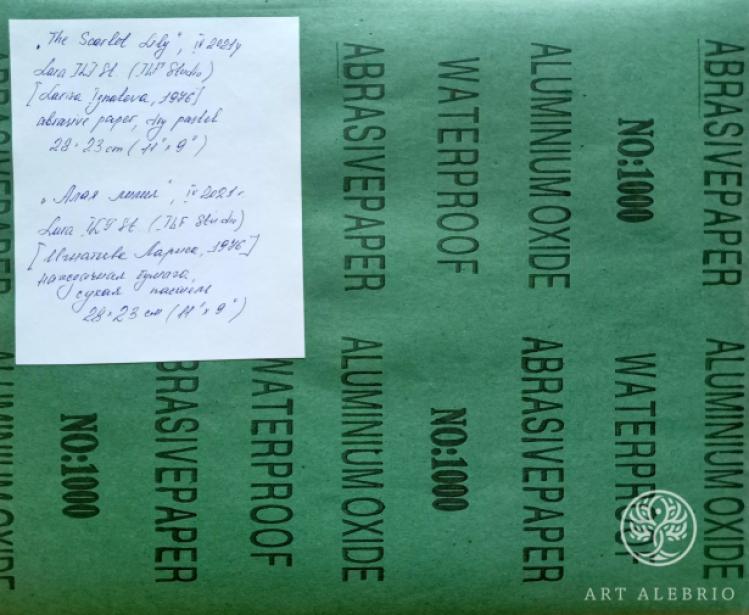 „The Scarlet Lily", IV 2021y
Lara ILF St. (ILF Studio)
[Larisa Ignatova, 1976]
abrasive paper, dry pastel
28 × 23 cm (11" × 9")
„Алая лилия", IV 2021г.
Lara ILF St. (ILF Studio)
[Игнатова Лариса, 1976]
наждачная бумага,
сухая пастель
28 × 23 см (11" × 9")
ABRASIVEPAPER
WATERPROOF
ALUMINIUM OXIDE
NO:1000
ABRASIVEPAPER
ALUMINIUM OXIDE
NO:1000
ABRASIVEPAPER
WATERPROOF
ALUMINIUM OXIDE
NO:1000
ABRASIVEPAPER
WATERPROOF
ALUMINIUM OXIDE
ART ALEBRIO